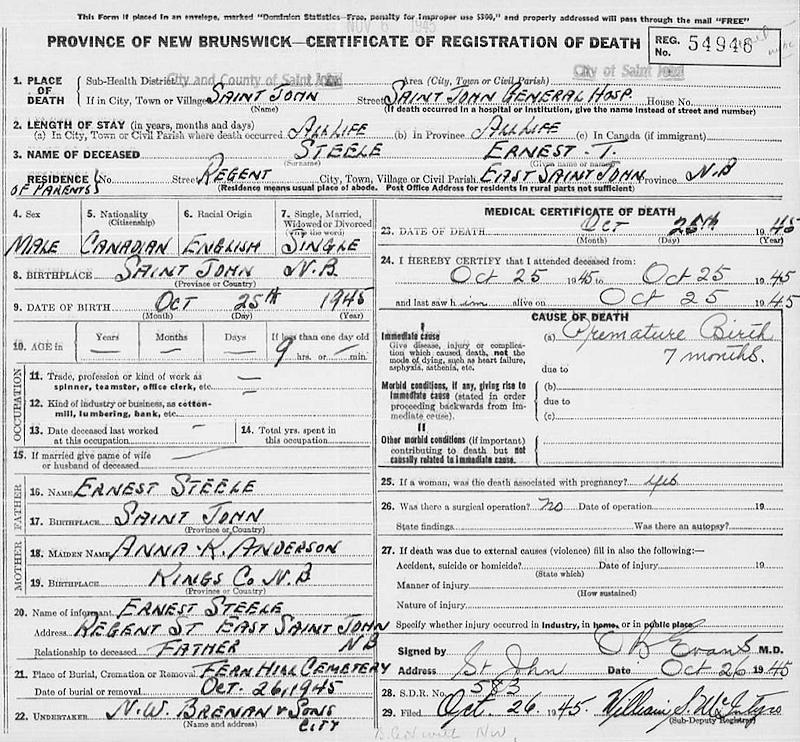 This Form if placed in an envelope, marked "Dominion Statistics—Free, penalty for improper use $300," and properly addressed will pass through the mail "FREE"
NOV 6 1945
PROVINCE OF NEW BRUNSWICK—CERTIFICATE OF REGISTRATION OF DEATH
REG. No. 54946
1. PLACE OF DEATH
Sub-Health District City and County of Saint John Area (City, Town or Civil Parish) City of Saint John
If in City, Town or Village SAINT JOHN Street SAINT JOHN GENERAL HOSP. House No.
(Name) (If death occurred in a hospital or institution, give the name instead of street and number)
2. LENGTH OF STAY (in years, months and days)
(a) In City, Town or Civil Parish where death occurred ALL LIFE (b) In Province ALL LIFE (c) In Canada (if immigrant)
3. NAME OF DECEASED STEELE ERNEST T.
(Surname) (Given name or names)
RESIDENCE OF PARENTS No. Street REGENT City, Town, Village or Civil Parish EAST SAINT JOHN Province N.B
(Residence means usual place of abode. Post Office Address for residents in rural parts not sufficient)
4. Sex 5. Nationality (Citizenship) 6. Racial Origin 7. Single, Married, Widowed or Divorced (Write the word)
MALE CANADIAN ENGLISH SINGLE
8. BIRTHPLACE SAINT JOHN N.B.
(Province or Country)
9. DATE OF BIRTH OCT 25th 1945
(Month) (Day) (Year)
10. AGE in Years Months Days If less than one day old
— — — 9 hrs. or — min.
OCCUPATION
11. Trade, profession or kind of work as spinner, teamster, office clerk, etc. —
12. Kind of industry or business, as cotton-mill, lumbering, bank, etc. —
13. Date deceased last worked at this occupation - 14. Total yrs. spent in this occupation
15. If married give name of wife or husband of deceased —
FATHER
16. NAME ERNEST STEELE
17. BIRTHPLACE SAINT JOHN
(Province or Country)
MOTHER
18. MAIDEN NAME ANNA K. ANDERSON
19. BIRTHPLACE KINGS CO N.B
(Province or Country)
20. Name of informant ERNEST STEELE
Address REGENT ST EAST SAINT JOHN
Relationship to deceased FATHER NB
21. Place of Burial, Cremation or Removal FERN HILL CEMETERY
Date of burial or removal OCT. 26, 1945
22. UNDERTAKER N.W. BRENAN & SONS
CITY
(Name and address)
MEDICAL CERTIFICATE OF DEATH
23. DATE OF DEATH OCT 25th 1945
(Month) (Day) (Year)
24. I HEREBY CERTIFY that I attended deceased from:
Oct 25 1945 to Oct 25 1945
and last saw him alive on Oct 25 1945
CAUSE OF DEATH
I
Immediate cause (a) Premature Birth
Give disease, injury or complication which caused death, not the mode of dying, such as heart failure, asphyxia, asthenia, etc.
7 months.
due to
Morbid conditions, if any, giving rise to immediate cause (stated in order proceeding backwards from immediate cause). (b)
due to
(c)
II
Other morbid conditions (if important) contributing to death but not causally related to immediate cause.
25. If a woman, was the death associated with pregnancy? yes
26. Was there a surgical operation? no Date of operation 19
State findings Was there an autopsy?
27. If death was due to external causes (violence) fill in also the following:—
Accident, suicide or homicide? Date of injury 19
(State which)
Manner of injury
(How sustained)
Nature of injury
Specify whether injury occurred in industry, in home, or in public place.
Signed by Evans M.D.
Address St John Date Oct 26 1945
28. S.D.R. No. 583
29. Filed Oct. 26. 1945. William S. McIntyre
(Sub-Deputy Registrar)